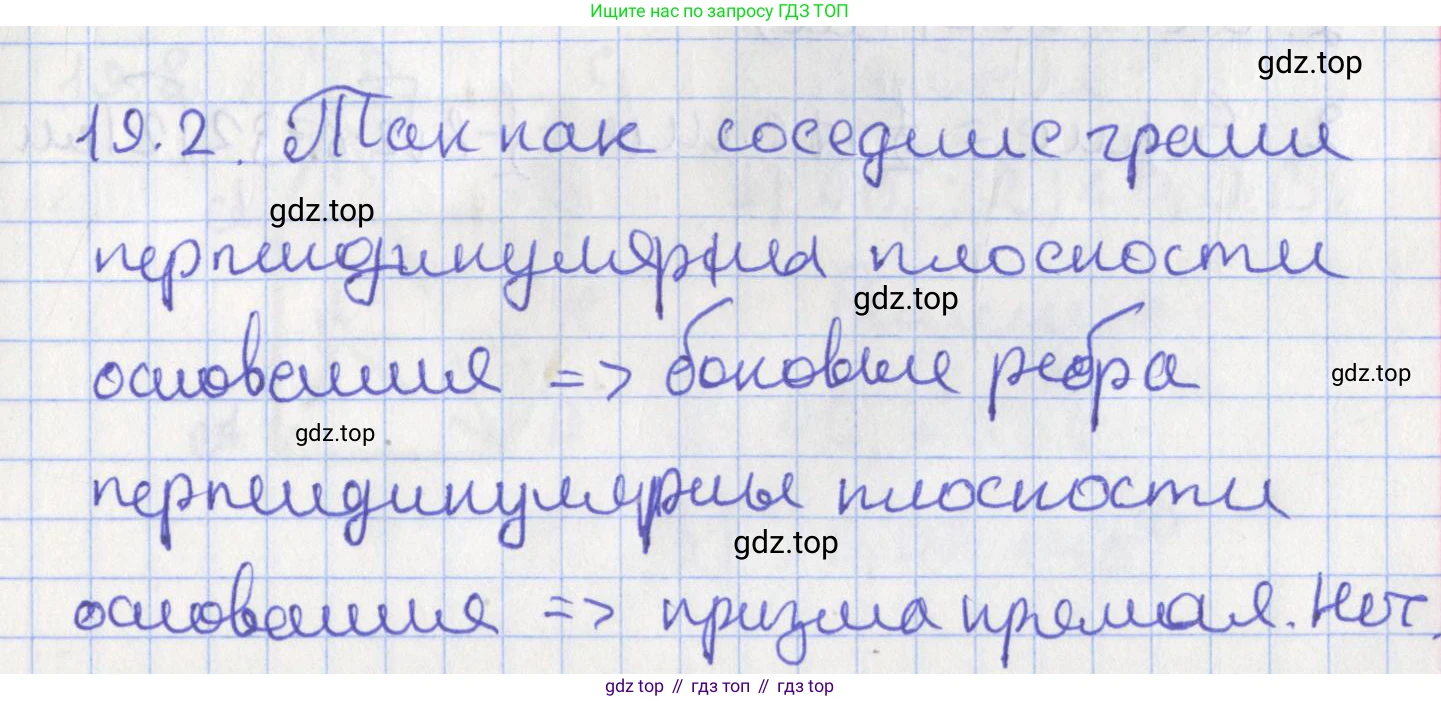 Ищите нас по запросу ГДЗ ТОП
gdz.top
19.2. Так как соседние грани
gdz.top
перпендикулярны плоскости
gdz.top
основания => боковые ребра
gdz.top
gdz.top
перпендикулярны плоскости
gdz.top
основания => призма прямая. Нет,
gdz top // гдз топ // гдз top